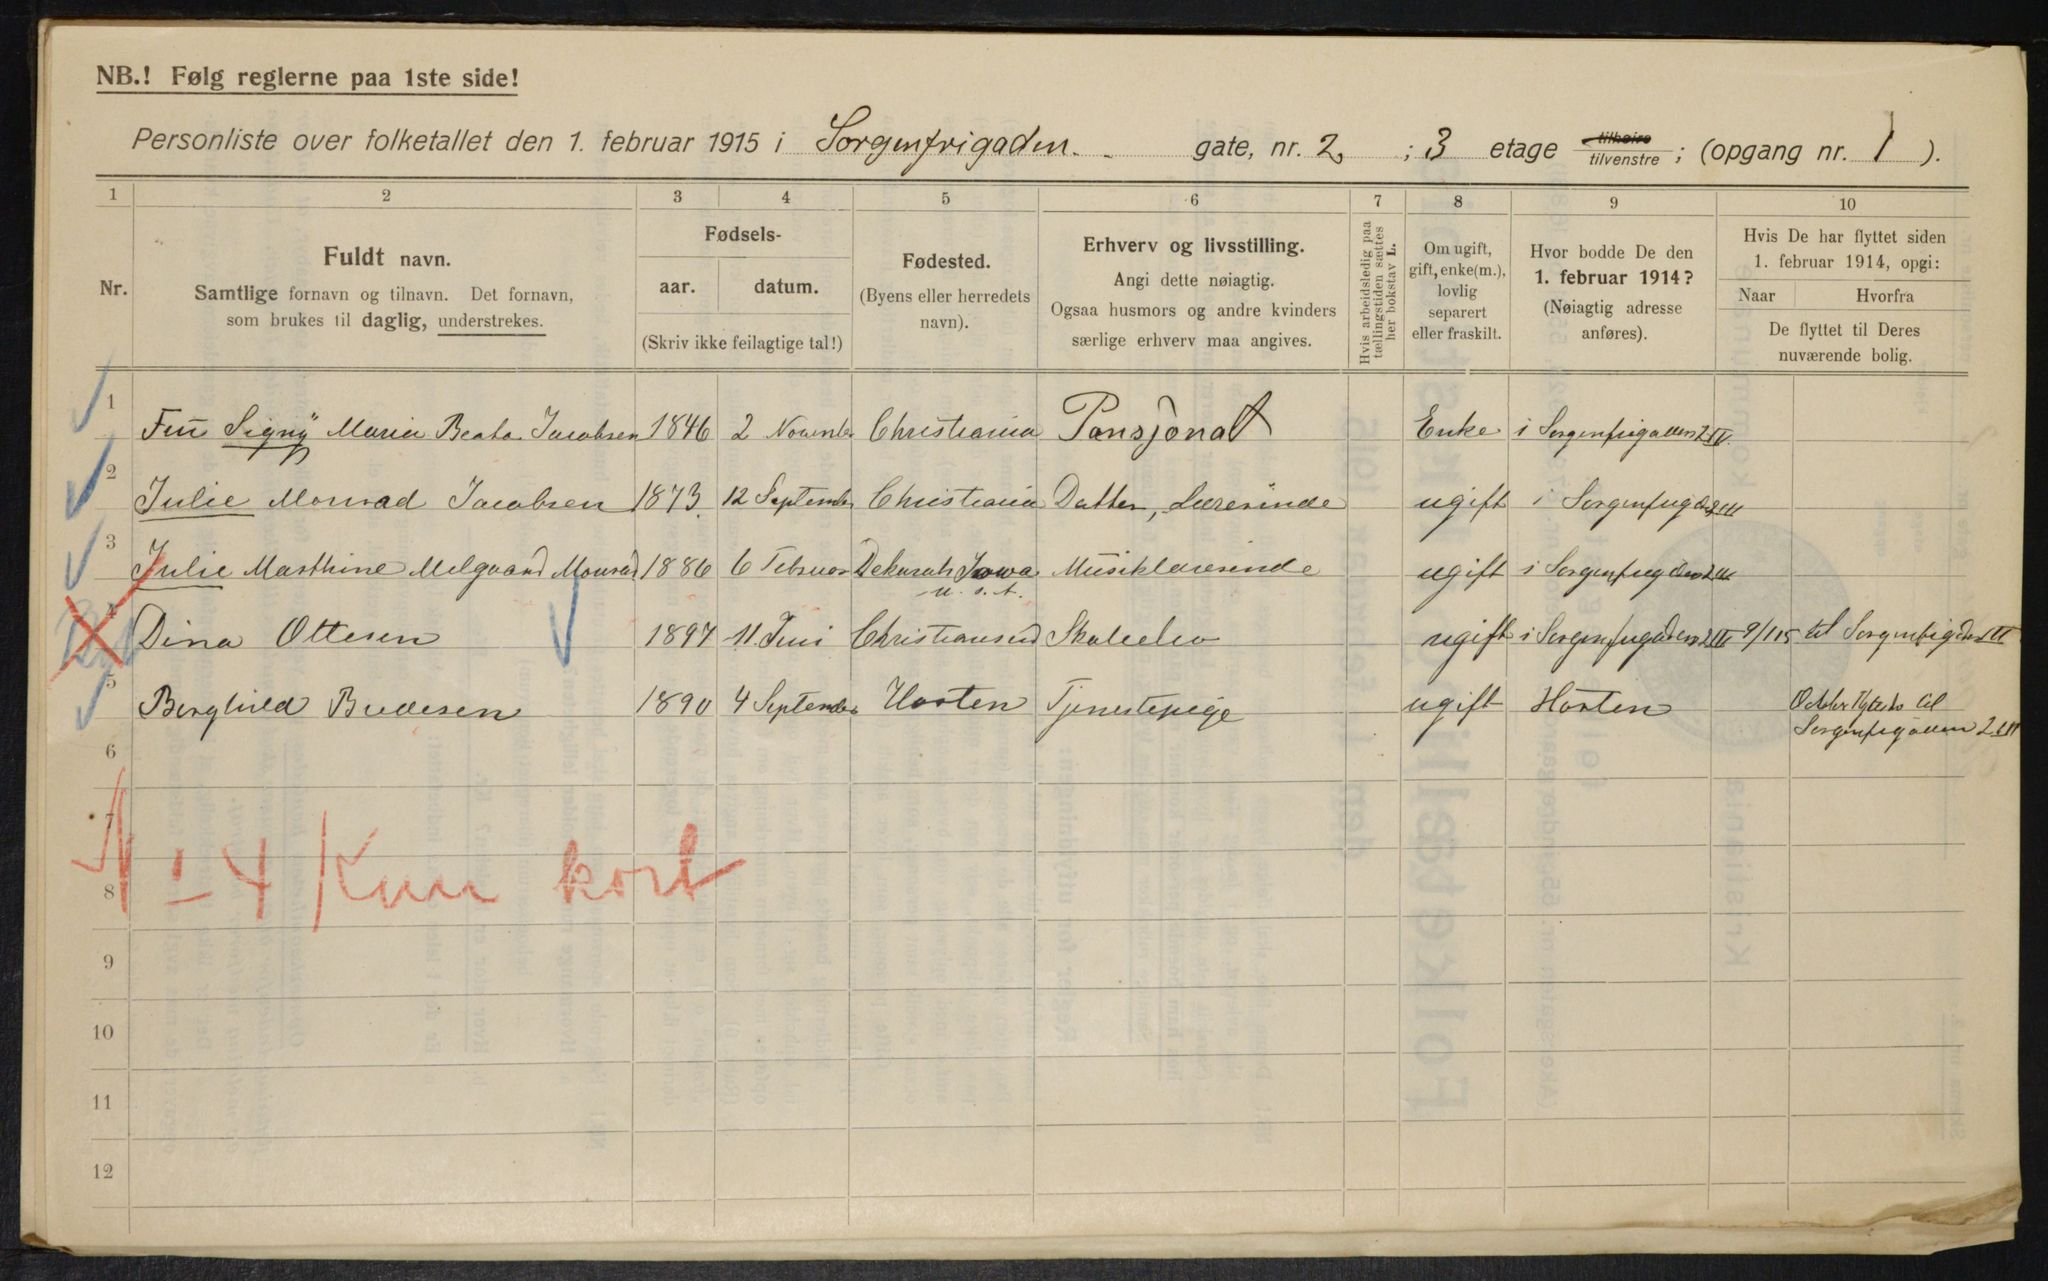 NB.! Følg reglerne paa 1ste side!
Personliste over folketallet den 1. februar 1915 i Sorgenfrigaden. gate, nr. 2, ; 3 etage tilhøire tilvenstre ; (opgang nr. 1 ).
1 2 3 4 5 6 7 8 9 10
Nr.
Fuldt navn.
Samtlige fornavn og tilnavn. Det fornavn,
som brukes til daglig, understrekes.
Fødsels-
aar. datum.
(Skriv ikke feilagtige tal!)
Fødested.
(Byens eller herredets
navn).
Erhverv og livsstilling.
Angi dette nøiagtig.
Ogsaa husmors og andre kvinders
særlige erhverv maa angives.
Hvis arbeidsledig paa
tællingstiden sættes
her bokstav L.
Om ugift,
gift, enke(m.),
lovlig
separert
eller fraskilt.
Hvor bodde De den
1. februar 1914?
(Nøiagtig adresse
anføres).
Hvis De har flyttet siden
1. februar 1914, opgi:
Naar Hvorfra
De flyttet til Deres
nuværende bolig.
1 Signy Maria Beata Jacobsen 1846 2 Novembr Christiania Pansjonat Enke i Sorgenfrigaden 2 IV.
2 Julie Monrad Jacobsen 1873. 12 September Christiania Datter, Lærerinde ugift i Sorgenfrigden 2 III
3 Julie Marthine Melgaard Monrad 1886 6 Februar Dekorah Jowa Musiklærerinde ugift i Sorgenfrigden 2 III
U. S. A.
4 Dina Ottesen 1897 11 Juni Christiansund Skoleelev ugift i Sorgenfrigaden 2 III 9/1 15 til Sorgenfrigden II
5 Borghild Bredesen 1890 4 September Horten Tjenestepige ugift Horten til
Sorgenfrigaden 2 III
6
7
N: 4 Kun kort
8
9
10
11
12